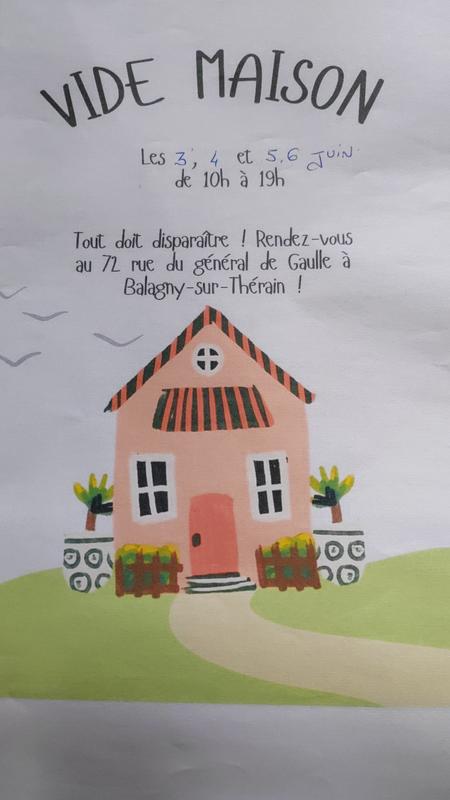 VIDE MAISON
Les 3, 4 et 5,6 JUIN
de 10h à 19h
Tout doit disparaître ! Rendez-vous
au 72 rue du général de Gaulle à
Balagny-sur-Thérain !